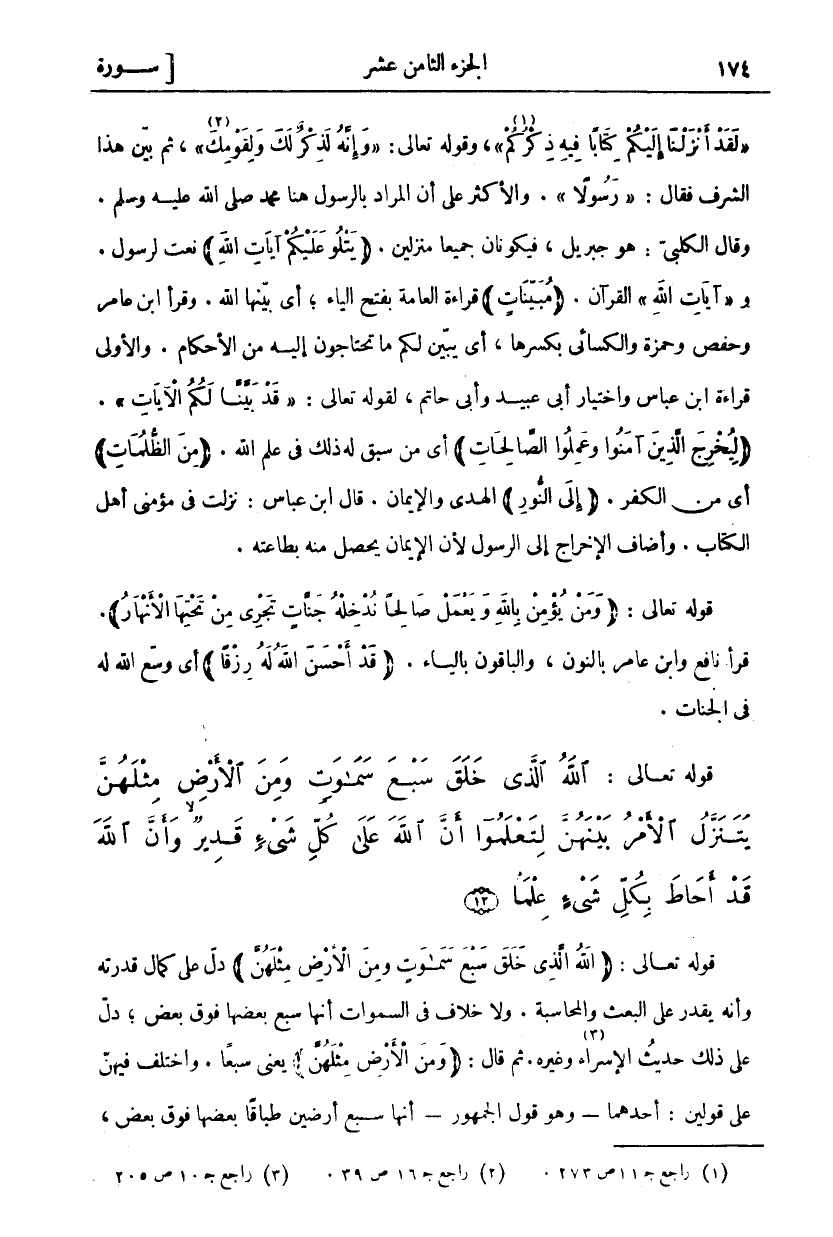 ١٧٤ الجزء الثامن عشر [ ســـورة
«لَقَدْ أَنْزَلْنَا إِلَيْكُمْ كِتَابًا فِيهِ ذِكْرُكُمْ(١)»، وقوله تعالى: «وَإِنَّهُ لَذِكْرٌ لَكَ وَلِقَوْمِكَ(٢)» ، ثم بيّن هذا
الشرف فقال : « رَسُولًا » . والأكثر على أن المراد بالرسول هنا محمد صلى الله عليه وسلم .
وقال الكلبيّ : هو جبريل ، فيكونان جميعا منزلين . ﴿ يَتْلُو عَلَيْكُمْ آيَاتِ اللهِ ﴾ نعت لرسول .
و « آيَاتِ اللهِ » القرآن . ﴿ مُبَيَّنَاتٍ ﴾ قراءة العامة بفتح الياء ؛ أى بيّنها الله . وقرأ ابن عامر
وحفص وحمزة والكسائى بكسرها ، أى يبيّن لكم ما تحتاجون إليه من الأحكام . والأولى
قراءة ابن عباس واختيار أبى عبيد وأبى حاتم ، لقوله تعالى : « قَدْ بَيَّنَّا لَكُمُ الْآيَاتِ » .
﴿ لِيُخْرِجَ الَّذِينَ آمَنُوا وَعَمِلُوا الصَّالِحَاتِ ﴾ أى من سبق له ذلك فى علم الله . ﴿ مِنَ الظُّلُمَاتِ ﴾
أى من الكفر . ﴿ إِلَى النُّورِ ﴾ الهدى والإيمان . قال ابن عباس : نزلت فى مؤمنى أهل
الكتاب . وأضاف الإخراج إلى الرسول لأن الإيمان يحصل منه بطاعته .
قوله تعالى : ﴿ وَمَنْ يُؤْمِنْ بِاللهِ وَيَعْمَلْ صَالِحًا نُدْخِلْهُ جَنَّاتٍ تَجْرِى مِنْ تَحْتِهَا الْأَنْهَارُ ﴾.
قرأ نافع وابن عامر بالنون ، والباقون بالياء . ﴿ قَدْ أَحْسَنَ اللهُ لَهُ رِزْقًا ﴾ أى وسّع الله له
فى الجنات .
قوله تعالى : ٱللَّهُ ٱلَّذِى خَلَقَ سَبْعَ سَمَـٰوَٰتٍ وَمِنَ ٱلْأَرْضِ مِثْلَهُنَّ
يَتَنَزَّلُ ٱلْأَمْرُ بَيْنَهُنَّ لِتَعْلَمُوٓا أَنَّ ٱللَّهَ عَلَىٰ كُلِّ شَىْءٍ قَدِيرٌ وَأَنَّ ٱللَّهَ
قَدْ أَحَاطَ بِكُلِّ شَىْءٍ عِلْمَۢا ١٢
قوله تعالى : ﴿ اللهُ الَّذِى خَلَقَ سَبْعَ سَمَـٰوَٰتٍ وَمِنَ الْأَرْضِ مِثْلَهُنَّ ﴾ دلّ على كمال قدرته
وأنه يقدر على البعث والمحاسبة . ولا خلاف فى السموات أنها سبع بعضها فوق بعض ؛ دلّ
على ذلك حديثُ الإسراء(٣) وغيره. ثم قال : ﴿ وَمِنَ الْأَرْضِ مِثْلَهُنَّ ﴾ يعنى سبعًا . واختلف فيهنّ
على قولين : أحدهما — وهو قول الجمهور — أنها سبع أرضين طباقًا بعضها فوق بعض ،
(١) راجع جـ ١١ ص ٢٧٣ . (٢) راجع جـ ١٦ ص ٣٩ . (٣) راجع جـ ١٠ ص ٢٠٥ .